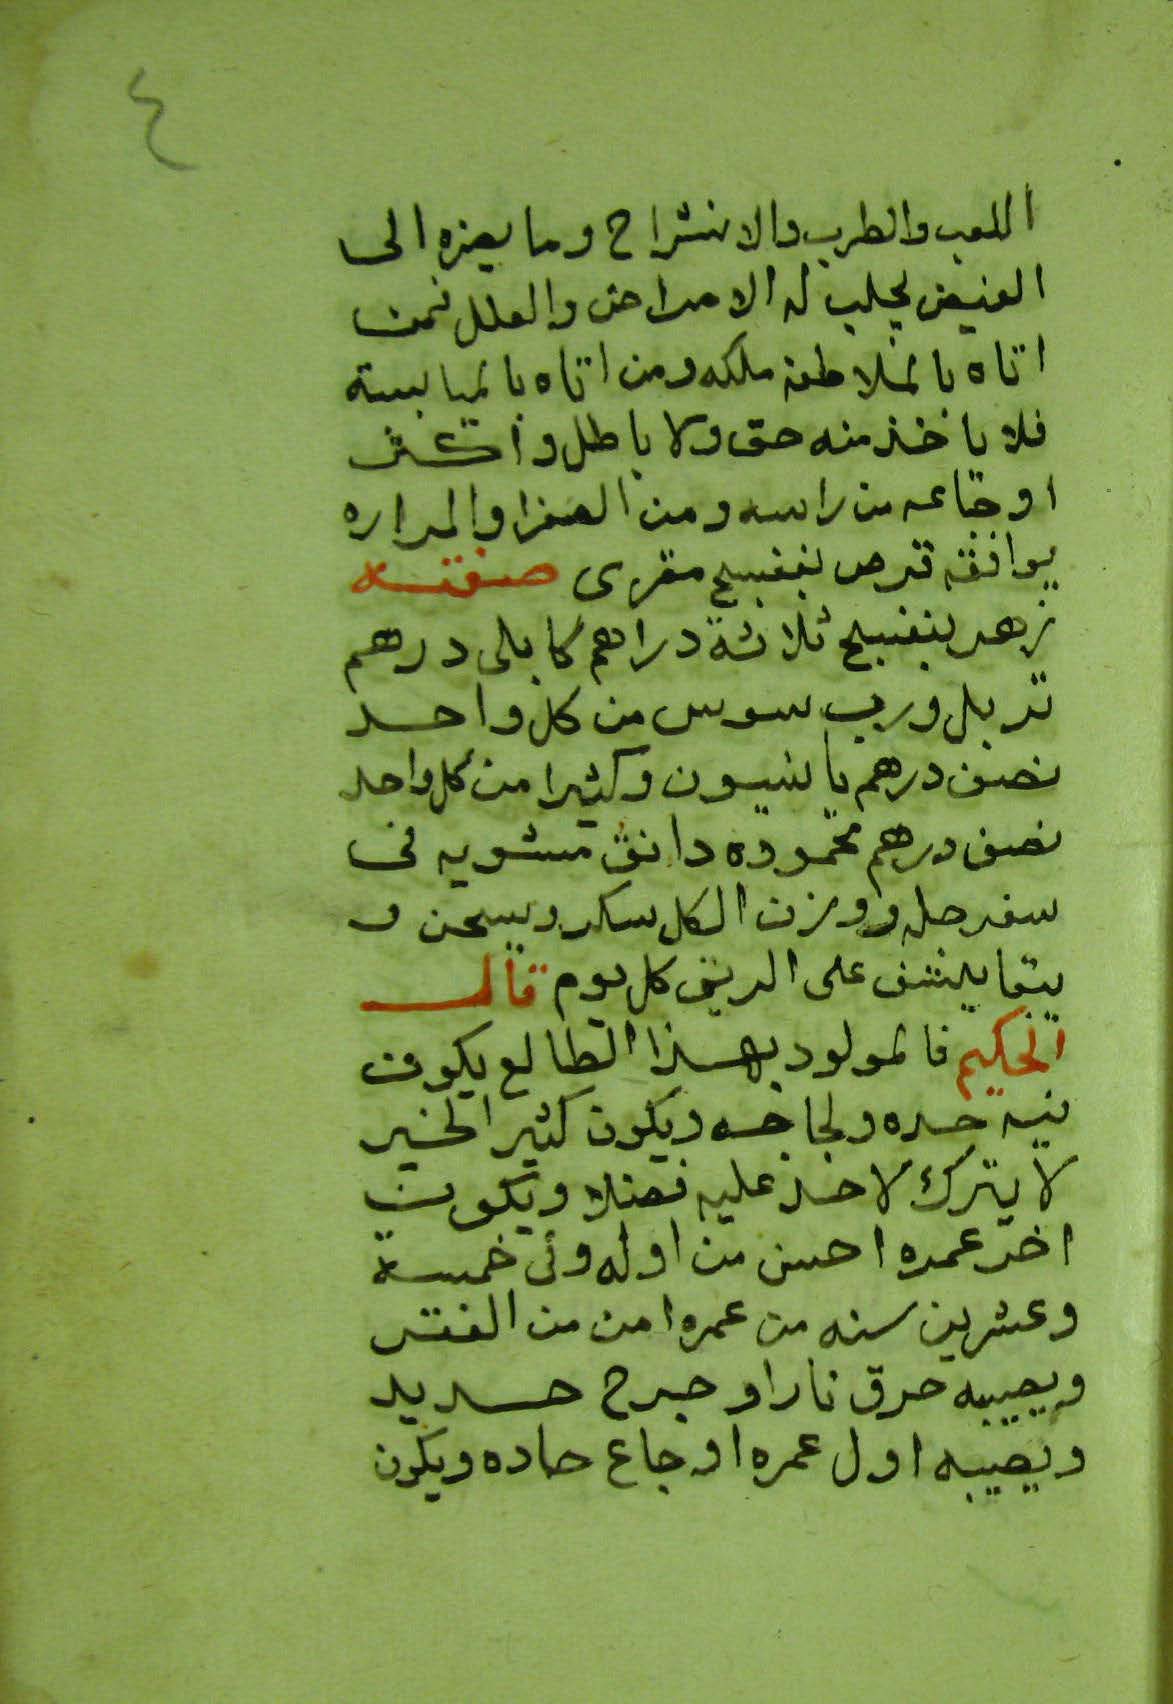 ٤
اللعب والطرب والانشراح وما يعزه الى
الغيض يجلب له الامراض والعلل فمن
اتاه بالملاطفه ملكه ومن اتاه باليابسة
فلا ياخذ منه حق ولا باطل واكثر
اوجاعه من راسه ومن الصفرا والمراره
يوافقه قرص بنفسج مقرى صفته
زهر بنفسج ثلاثة دراهم كابلى درهم
تربل ورب سوس من كل واحد
نصف درهم يانسيون وكثيرا من كل واحد
نصف درهم محموده دانق مشويه فى
سفرجله ووزن الكل سكر ويسحن و
يتقا بالنشف على الريق كل يوم قال
الحكيم فالمولود بهذا الطالع يكون
فيه حده ولجاجه ويكون كثير الخير
لا يترك لاحد عليه فضلا ويكون
اخر عمره احسن من اوله وفى خمسة
وعشرين سنه من عمره امن من الفقر
ويصيبه حرق نار او جرح حديد
ويصيبه اول عمره اوجاع حاده ويكون